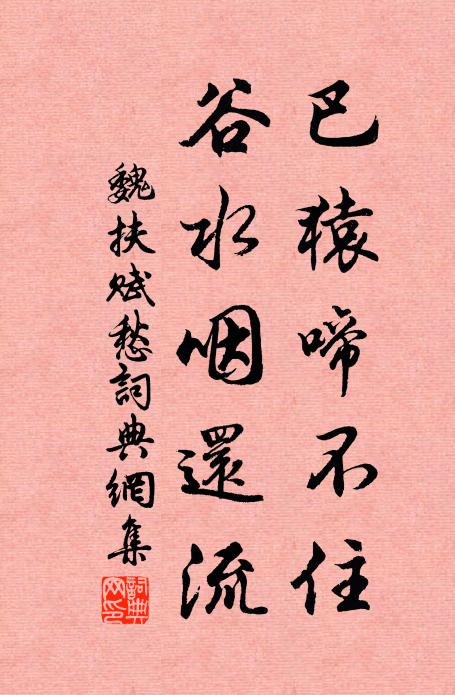 巴猿啼不住
谷水咽還流
魏扶賦愁詞典網集
詞典網印